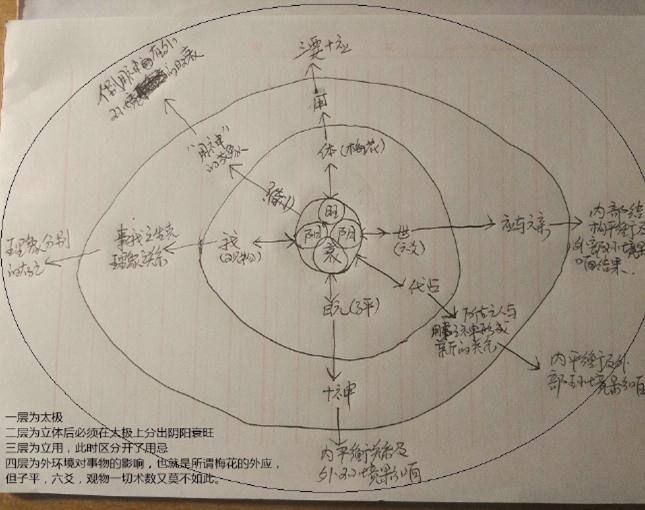 三要十应
用
体(梅花)
旺
阴
阳
衰
世
(六爻)
应与六亲
内部结
构平衡于及
外部环境影
响结果
我
(观物)
事我之生克
理象关系
理象分别
的存之
"用神"
代占
所占之人与
用神形成
新的关系
内平衡于及外
部环境影响
日元(子平)
十神
内平衡结果及
外环境影响
一层为太极
二层为立体后必须在太极上分出阴阳衰旺
三层为立用，此时区分开了用忌
四层为外环境对事物的影响，也就是所谓梅花的外应，
但子平，六爻，观物一切术数又莫不如此。